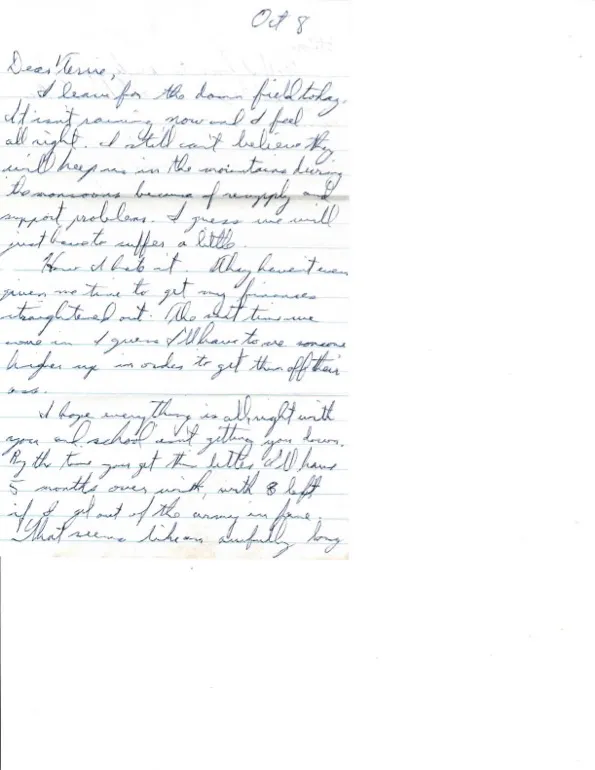 Oct 8
Dear Terrie,
I leave for the damn field today.
It isn't raining now and I feel
all right. I still can't believe they
will keep us in the mountains during
the monsoons because of resupply and
support problems. I guess we will
just have to suffer a little.
How I hate it. They haven't even
given me time to get my finances
straightened out. The next time we
come in I guess I'll have to see someone
higher up in order to get them off their
ass.
I hope everything is all right with
you and school isn't getting you down.
By the time you get this letter I'll have
5 months over with, with 8 left
if I get out of the army in June.
That seems like an awfully long